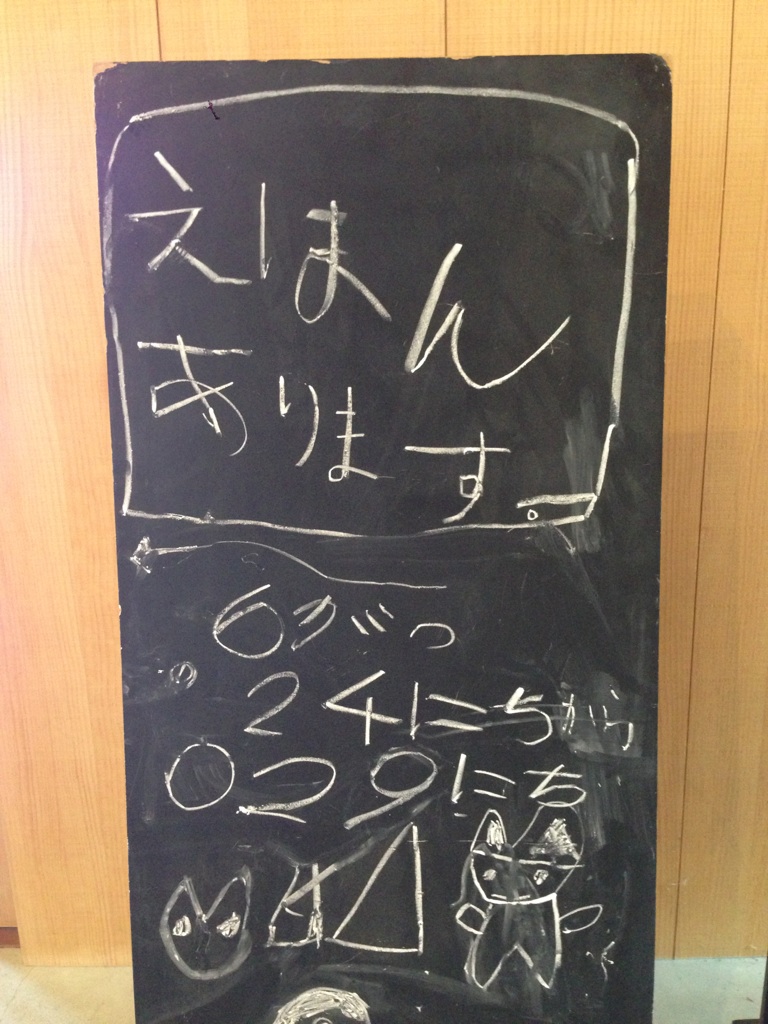 えほん
あります。
6がつ
24にち
29にち